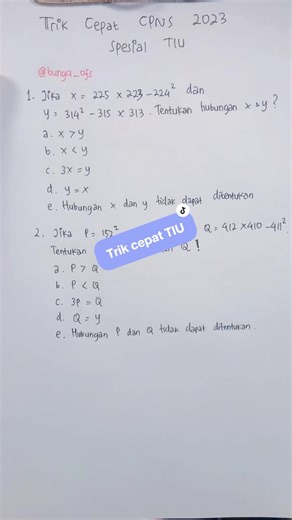 Trik Cepat CPNS 2023
Spesial TIU
@bunga_ofs
1. Jika x = 225 x 223 - 224² dan
y = 314² - 315 x 313. Tentukan hubungan x & y?
a. x > y
b. x < y
c. 3x = y
d. y = x
e. Hubungan x dan y tidak dapat ditentukan
2. Jika P = 157² Q = 412 x 410 - 411².
Tentukan Q!
Trik cepat TIU
a. P > Q
b. P < Q
c. 3P = Q
d. Q = y
e. Hubungan P dan Q tidak dapat ditentukan.